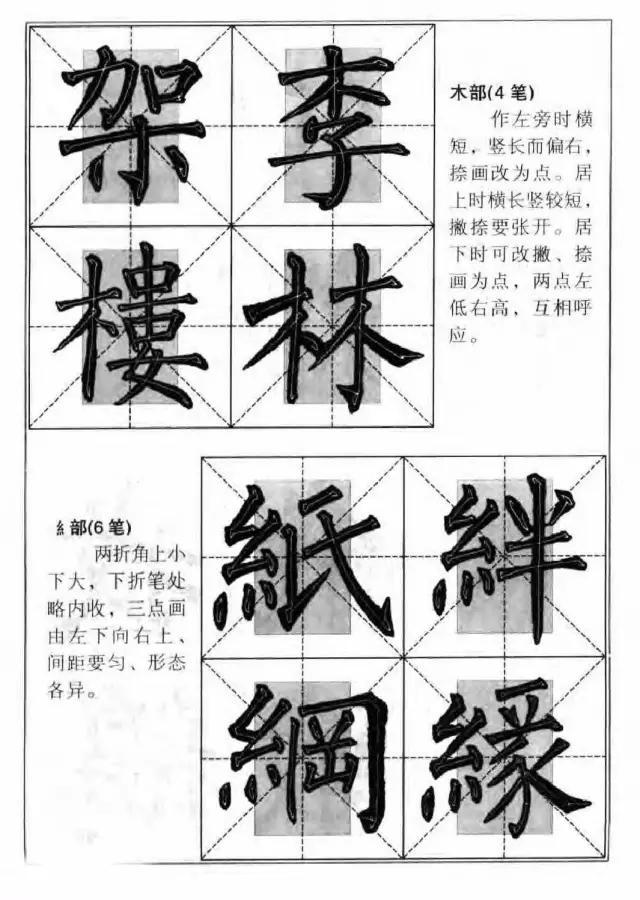 架李
木部(4笔)
作左旁时横
短，竖长而偏右，
捺画改为点。居
上时横长竖较短，
撇捺要张开。居
下时可改撇、捺
画为点，两点左
低右高，互相呼
应。
樓林
糹部(6笔)
两折角上小
下大，下折笔处
略内收，三点画
由左下向右上、
间距要匀、形态
各异。
紙絆
綱緣